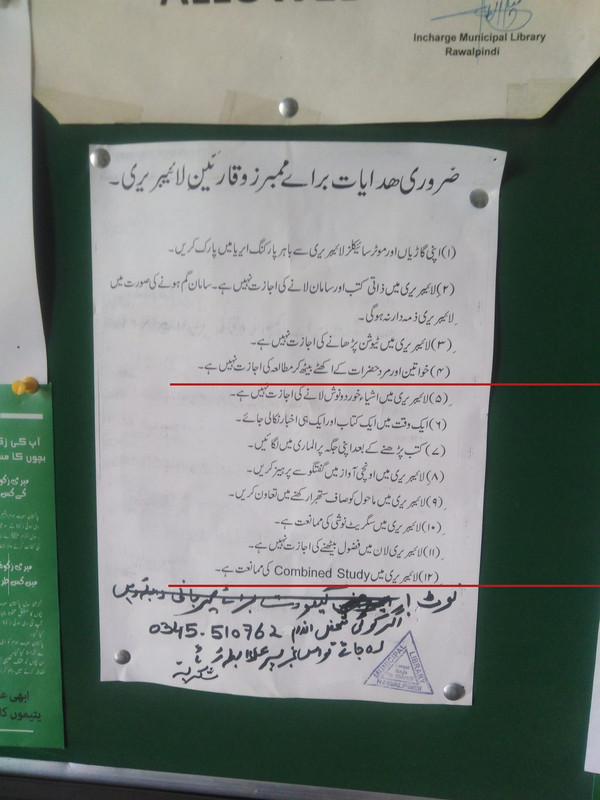 ALLOWED
Incharge Municipal Library
Rawalpindi
ضروری ھدایات برائے ممبرز و قارئین لائیبریری۔
(۱) اپنی گاڑیاں اور موٹر سائیکلز لائیبریری سے باہر پارکنگ ایریا میں پارک کریں۔
(۲) لائیبریری میں ذاتی کتب اور سامان لانے کی اجازت نہیں ہے۔ سامان گم ہونے کی صورت میں
لائیبریری ذمہ دار نہ ہوگی۔
(۳) لائیبریری میں ٹیوشن پڑھانے کی اجازت نہیں ہے۔
(۴) خواتین اور مرد حضرات کے اکھٹے بیٹھ کر مطالعہ کی اجازت نہیں ہے۔
(۵) لائیبریری میں اشیاء خوردونوش لانے کی اجازت نہیں ہے۔
(۶) ایک وقت میں ایک کتاب اور ایک ہی اخبار نکالی جائے۔
(۷) کتب پڑھنے کے بعد اپنی جگہ پر الماری میں لگائیں۔
(۸) لائیبریری میں اونچی آواز میں گفتگو سے پرہیز کریں۔
(۹) لائیبریری میں ماحول کو صاف ستھرا رکھنے میں تعاون کریں۔
(۱۰) لائیبریری میں سگریٹ نوشی کی ممانعت ہے۔
(۱۱) لائیبریری لان میں فضول بیٹھنے کی اجازت نہیں ہے۔
(۱۲) لائیبریری میں Combined Study کی ممانعت ہے۔
نوٹ!
اگر کوئی شخص اندر 0345-510762
شکریہ
MUNICIPAL LIBRARY
RAWALPINDI
آپ کی زکوٰ
بچوں کا مس
میری زکو
کے کس
میری زکو
میں کس طر
ابھی ع
یتیموں کا